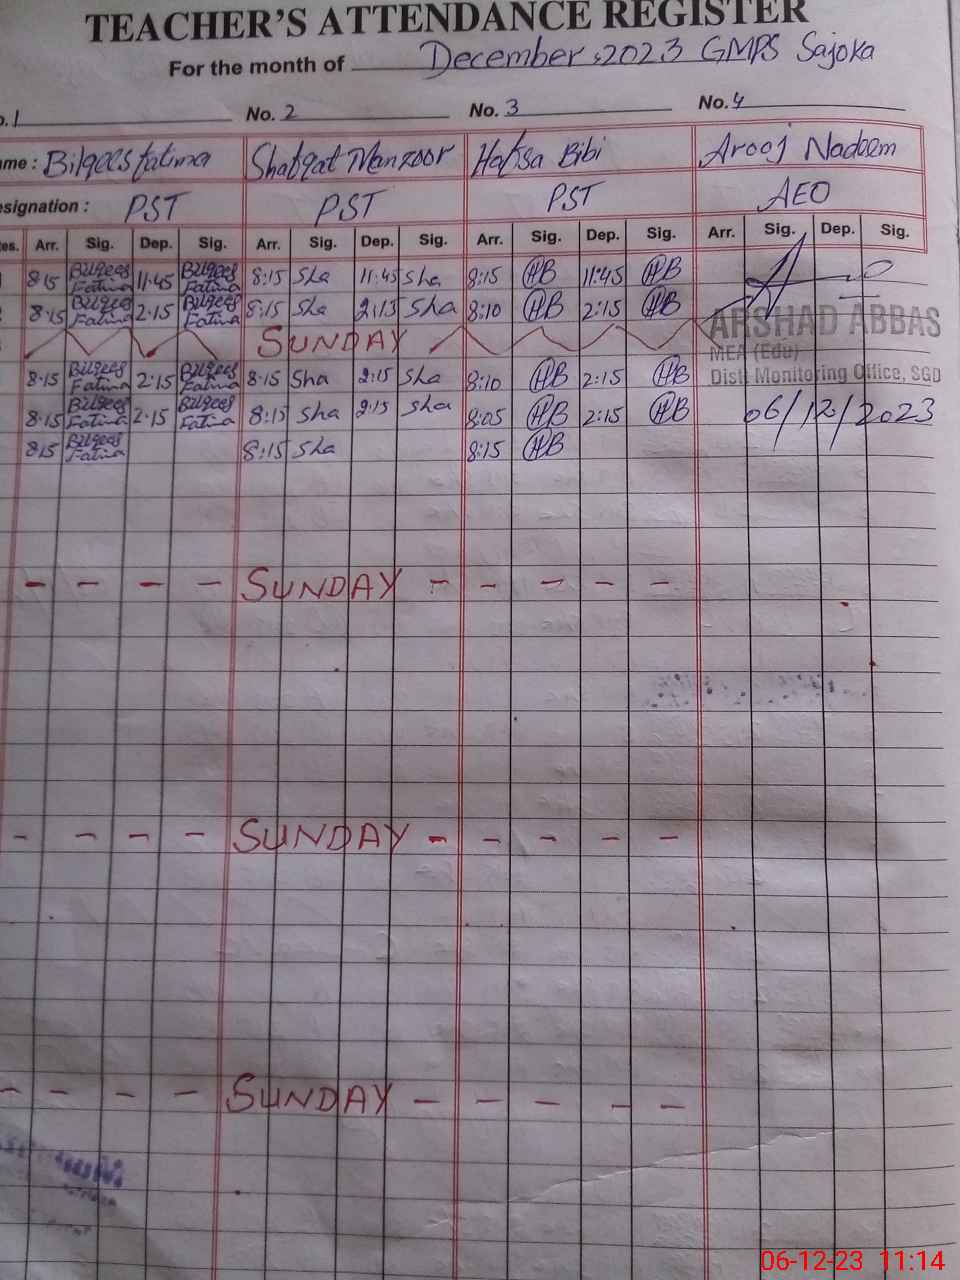 TEACHER'S ATTENDANCE REGISTER
For the month of December, 2023 GMPS Sajoka
No. 1 No. 2 No. 3 No. 4
Name : Bilqees fatima Shafqat Manzoor Hafsa Bibi Arooj Nadeem
Designation : PST PST PST AEO
Dates. Arr. Sig. Dep. Sig. Arr. Sig. Dep. Sig. Arr. Sig. Dep. Sig. Arr. Sig. Dep. Sig.
8:15 Bilqees Fatima 11:45 Bilqees Fatima 8:15 Sha 11:45 Sha 8:15 HB 11:45 HB
8:15 Bilqees Fatima 2:15 Bilqees Fatima 8:15 Sha 2:15 Sha 8:10 HB 2:15 HB
SUNDAY
8:15 Bilqees Fatima 2:15 Bilqees Fatima 8:15 Sha 2:15 Sha 8:10 HB 2:15 HB
8:15 Bilqees Fatima 2:15 Bilqees Fatima 8:15 Sha 2:15 Sha 8:05 HB 2:15 HB
8:15 Bilqees Fatima 8:15 Sha 8:15 HB
ARSHAD ABBAS
MEA (Edu)
Distt Monitoring Office, SGD
06/12/2023
- - - - SUNDAY - - - - -
- - - - SUNDAY - - - - -
- - - - SUNDAY - - - - -
06-12-23 11:14